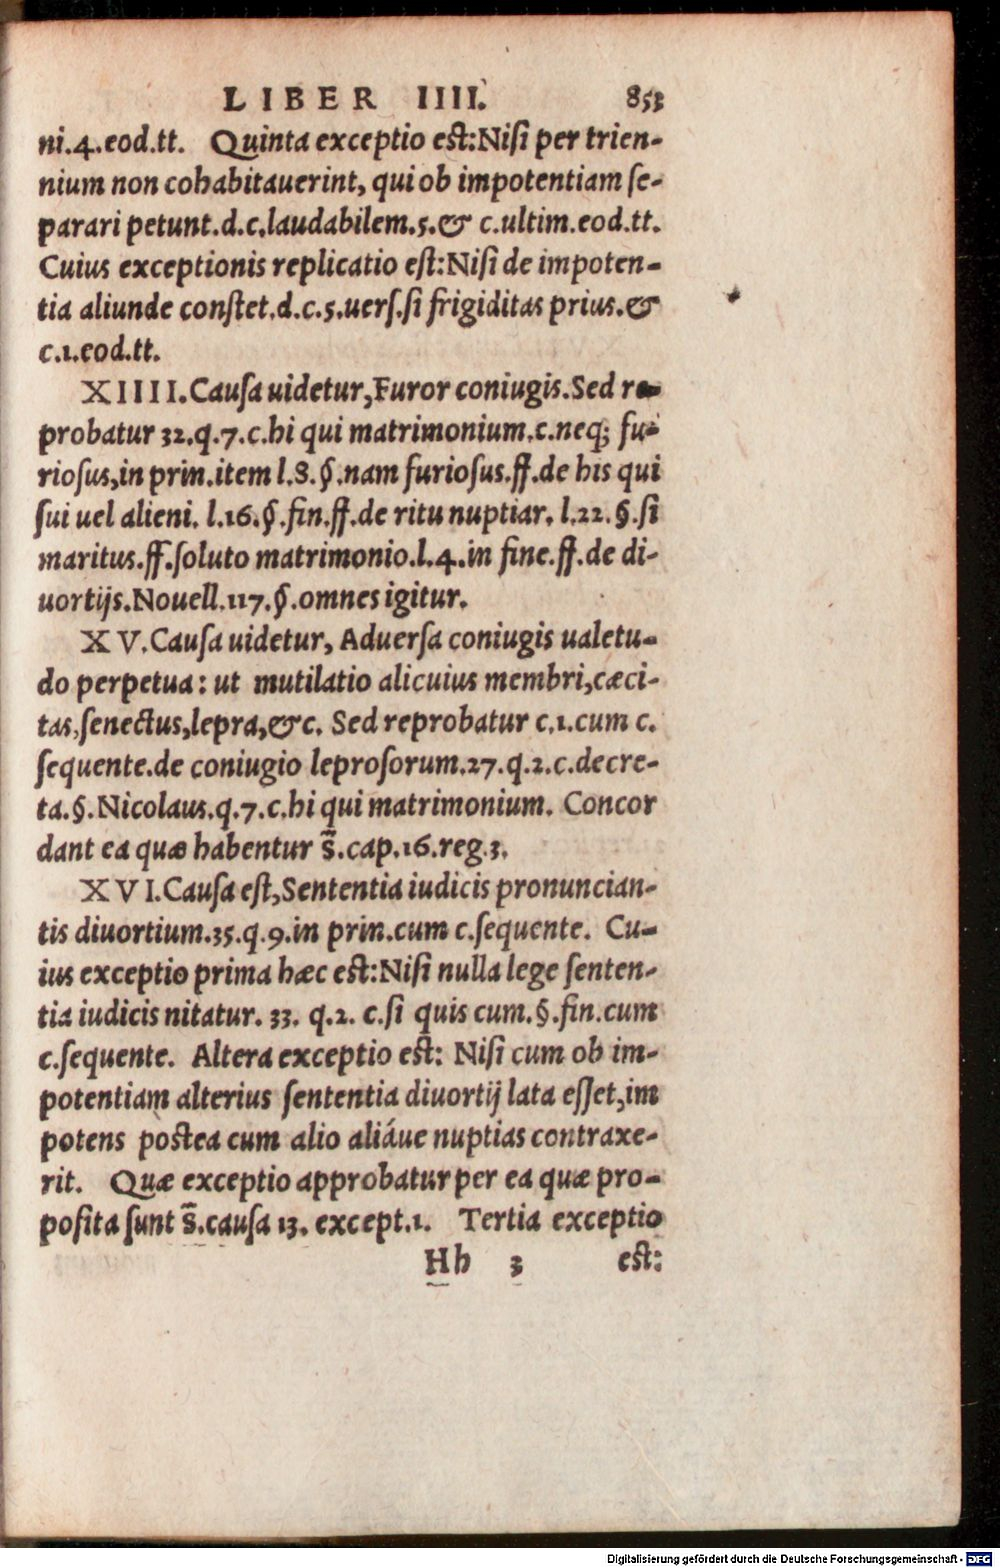 LIBER IIII. 853
ni.4.eod.tt. Quinta exceptio est:Nisi per trien-
nium non cohabitauerint, qui ob impotentiam se-
parari petunt.d.c.laudabilem.5.& c.ultim.eod.tt.
Cuius exceptionis replicatio est:Nisi de impoten-
tia aliunde constet.d.c.5.uers.si frigiditas prius.&
c.1.eod.tt.
XIIII.Causa uidetur,Furor coniugis.Sed re-
probatur 32.q.7.c.hi qui matrimonium.c.neq; fu-
riosus,in prin.item l.8.§.nam furiosus.ff.de his qui
sui uel alieni. l.16.§.fin.ff.de ritu nuptiar. l.22.§.si
maritus.ff.soluto matrimonio.l.4.in fine.ff.de di-
uortijs.Nouell.117.§.omnes igitur.
XV.Causa uidetur, Aduersa coniugis ualetu-
do perpetua: ut mutilatio alicuius membri,cæci-
tas,senectus,lepra,&c. Sed reprobatur c.1.cum c.
sequente.de coniugio leprosorum.27.q.2.c.decre-
ta.§.Nicolaus.q.7.c.hi qui matrimonium. Concor
dant ea quæ habentur s̃.cap.16.reg.3.
XVI.Causa est,Sententia iudicis pronuncian-
tis diuortium.35.q.9.in prin.cum c.sequente. Cu-
ius exceptio prima hæc est:Nisi nulla lege senten-
tia iudicis nitatur. 33. q.2. c.si quis cum.§.fin.cum
c.sequente. Altera exceptio est: Nisi cum ob im-
potentiam alterius sententia diuortij lata esset,im
potens postea cum alio aliáue nuptias contraxe-
rit. Quæ exceptio approbatur per ea quæ pro-
posita sunt s̃.causa 13. except.1. Tertia exceptio
Hh 3 est:
Digitalisierung gefördert durch die Deutsche Forschungsgemeinschaft - DFG